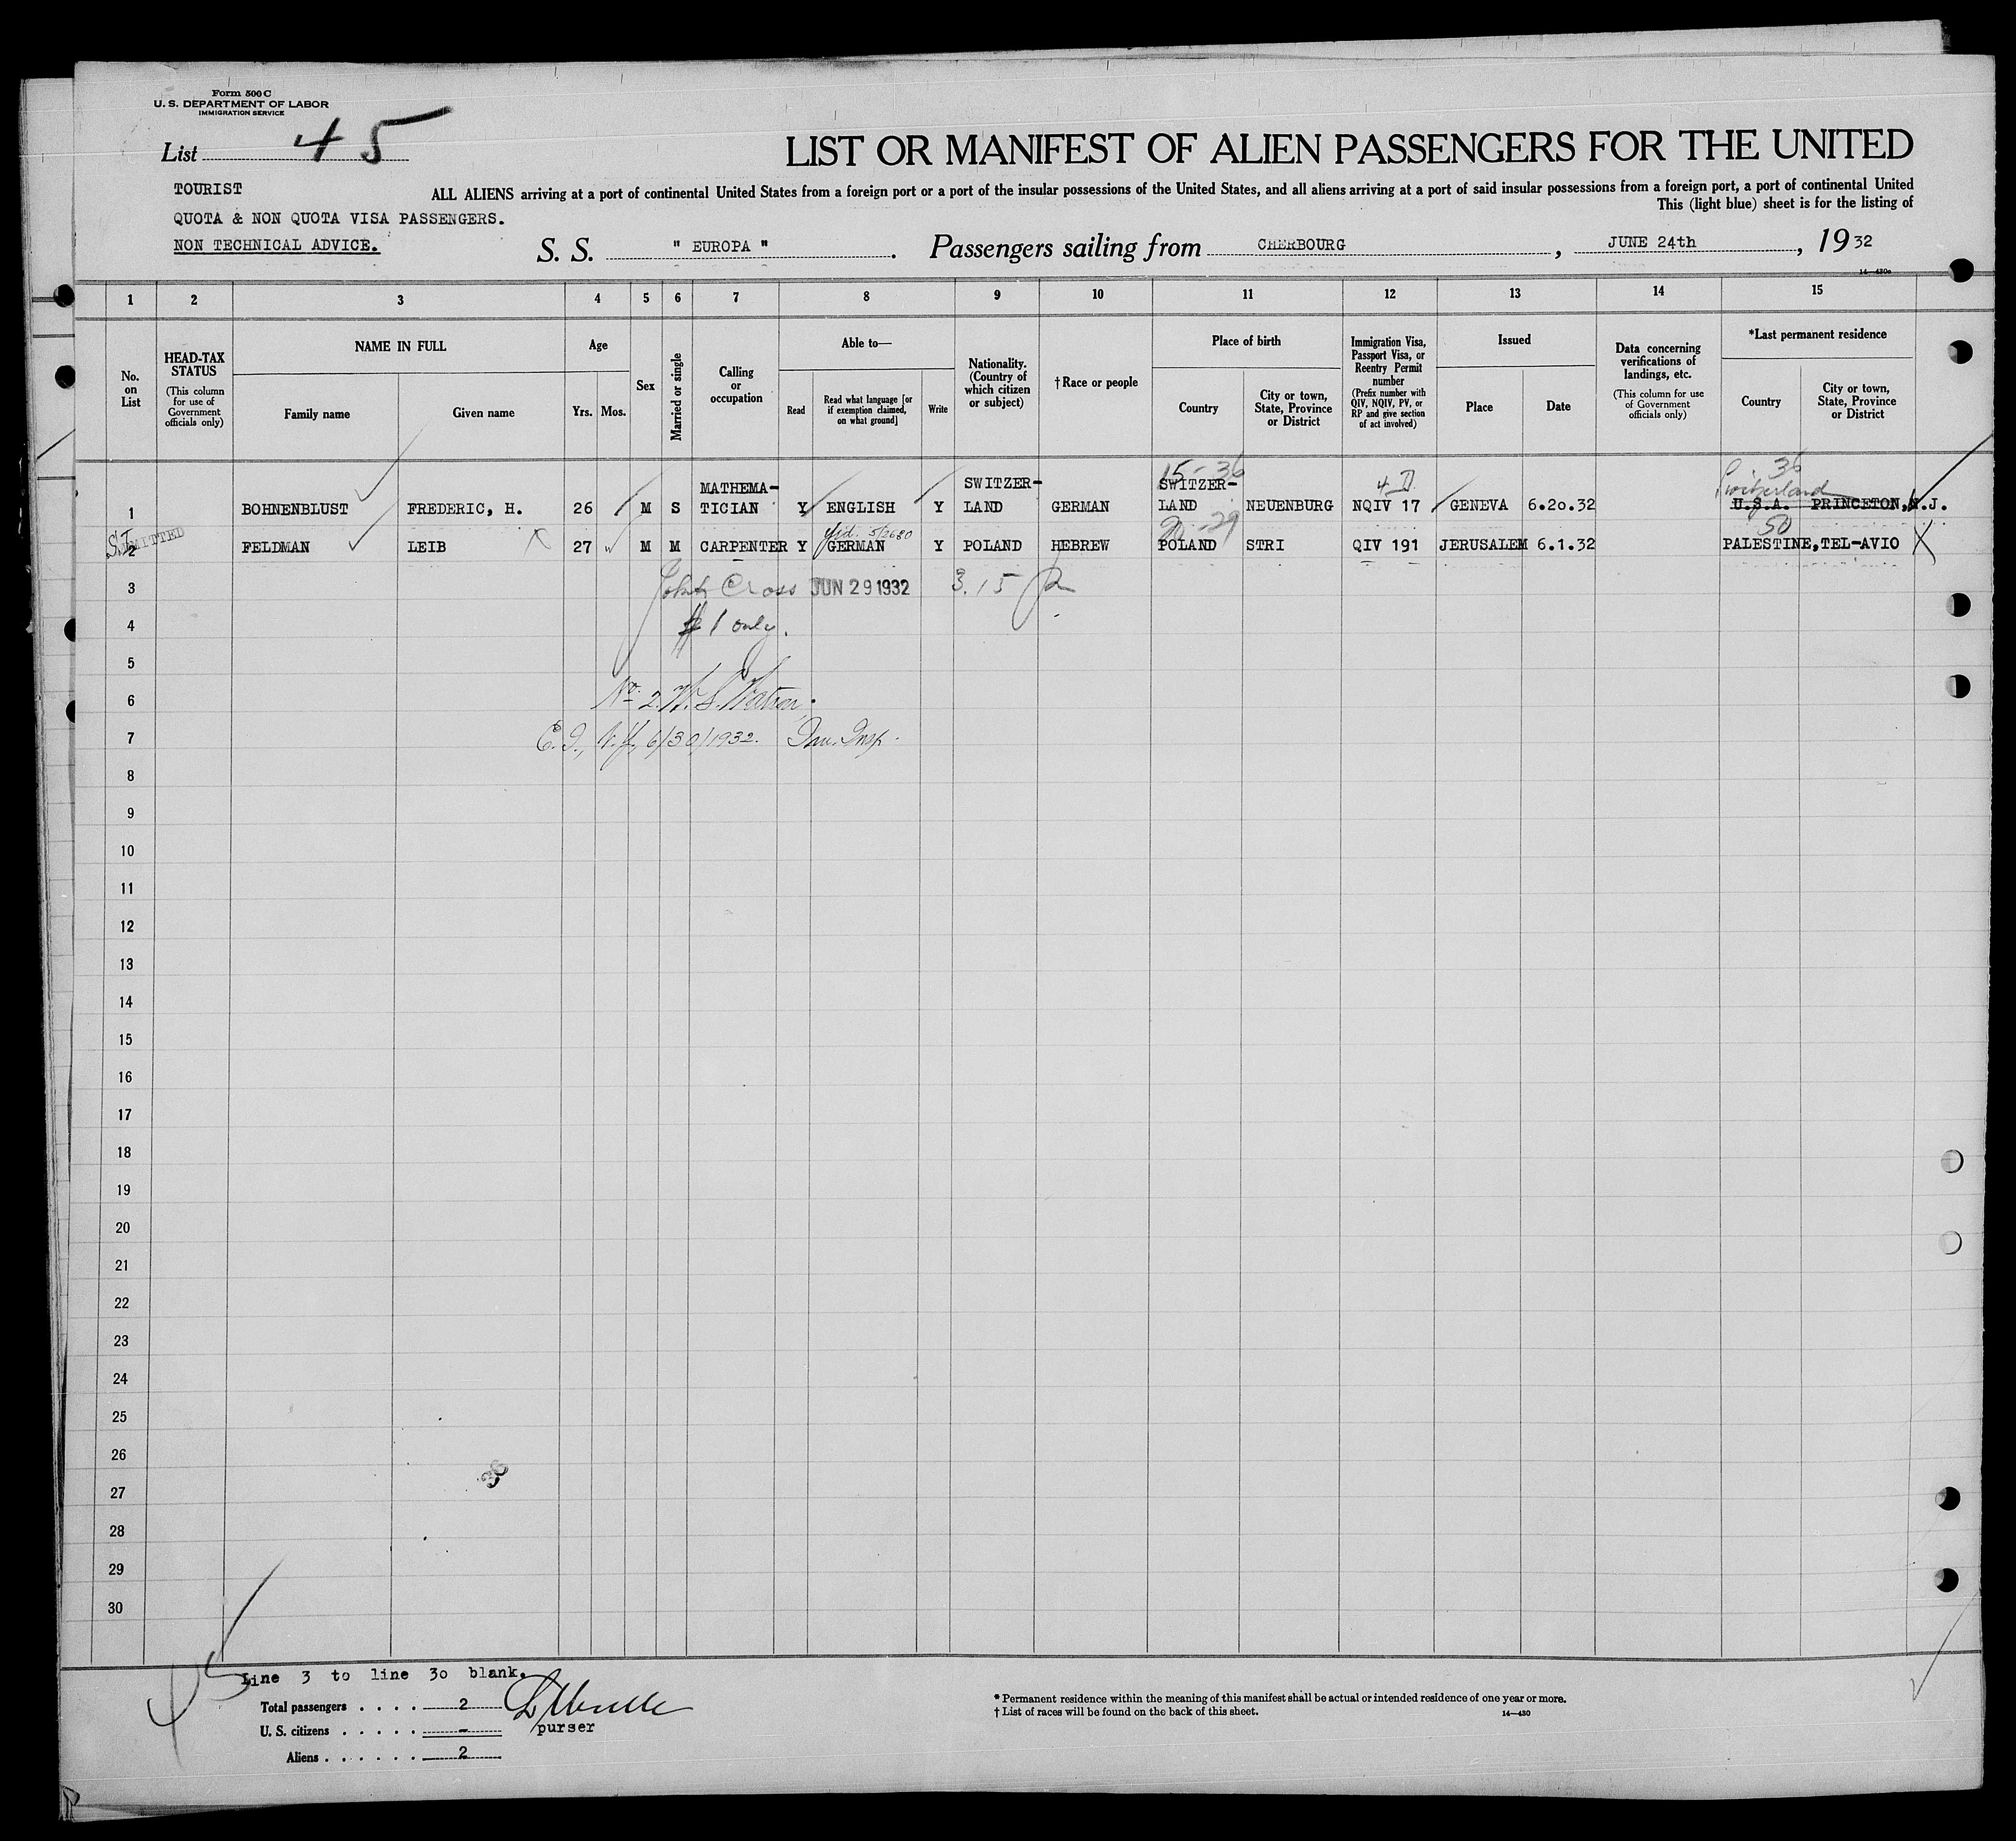 Form 500 C
U. S. DEPARTMENT OF LABOR
IMMIGRATION SERVICE
List 45
LIST OR MANIFEST OF ALIEN PASSENGERS FOR THE UNITED
TOURIST
QUOTA & NON QUOTA VISA PASSENGERS.
NON TECHNICAL ADVICE.
ALL ALIENS arriving at a port of continental United States from a foreign port or a port of the insular possessions of the United States, and all aliens arriving at a port of said insular possessions from a foreign port, a port of continental United
This (light blue) sheet is for the listing of
S. S. " EUROPA ". Passengers sailing from CHERBOURG, JUNE 24th, 1932
14—430a
1 2 3 4 5 6 7 8 9 10 11 12 13 14 15
No. on List
HEAD-TAX STATUS
(This column for use of Government officials only)
NAME IN FULL
Family name
Given name
Age
Yrs. Mos.
Sex
Married or single
Calling or occupation
Able to—
Read
Read what language [or if exemption claimed, on what ground]
Write
Nationality. (Country of which citizen or subject)
†Race or people
Place of birth
Country
City or town, State, Province or District
Immigration Visa, Passport Visa, or Reentry Permit number
(Prefix number with QIV, NQIV, PV, or RP and give section of act involved)
Issued
Place
Date
Data concerning verifications of landings, etc.
(This column for use of Government officials only)
*Last permanent residence
Country
City or town, State, Province or District
15-36 36
4 D Switzerland
1 BOHNENBLUST FREDERIC, H. 26 M S MATHEMA-TICIAN Y ENGLISH Y SWITZER-LAND GERMAN SWITZER-LAND NEUENBURG NQIV 17 GENEVA 6.20.32 U.S.A. PRINCETON, N.J.
ADMITTED
Yid. 5/2680 50
2 FELDMAN LEIB 27 M M CARPENTER Y GERMAN Y POLAND HEBREW POLAND STRI QIV 191 JERUSALEM 6.1.32 PALESTINE, TEL-AVIO
3 John Cross JUN 29 1932 3.15
4 #1 only.
5
6 No. 2. W. S. Watson
7 E.I., N.Y., 6/30/1932. Imm. Insp.
8
9
10
11
12
13
14
15
16
17
18
19
20
21
22
23
24
25
26
27
28
29
30
45
Line 3 to line 30 blank.
Total passengers . . . . 2
U. S. citizens . . . . . -
Aliens . . . . . . 2
purser
* Permanent residence within the meaning of this manifest shall be actual or intended residence of one year or more.
† List of races will be found on the back of this sheet.
14—430